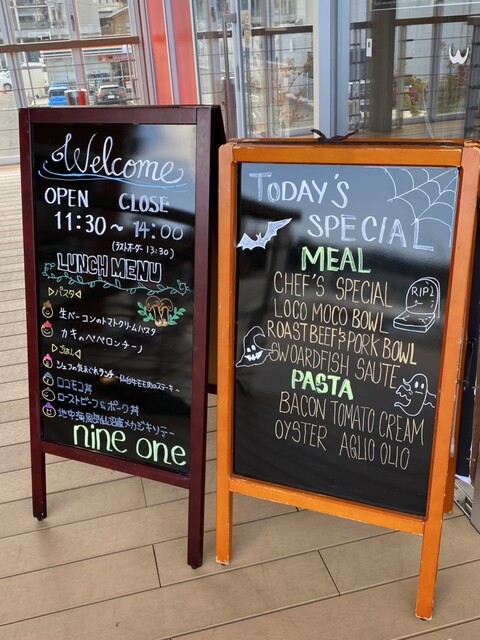 Welcome
OPEN CLOSE
11:30~14:00
(ラストオーダー 13:30)
LUNCH MENU
▷パスタ◁
生ベーコンのトマトクリームパスタ
カキのペペロンチーノ
▷ごはん◁
シェフの気まぐれランチ
ロコモコ丼
ローストビーフ&ポーク丼
地中海風気仙沼産メカジキソテー
nine one
TODAY'S
SPECIAL
MEAL
CHEF'S SPECIAL
LOCO MOCO BOWL
ROAST BEEF&PORK BOWL
SWOARDFISH SAUTE
PASTA
BACON TOMATO CREAM
OYSTER AGLIO OLIO
RIP